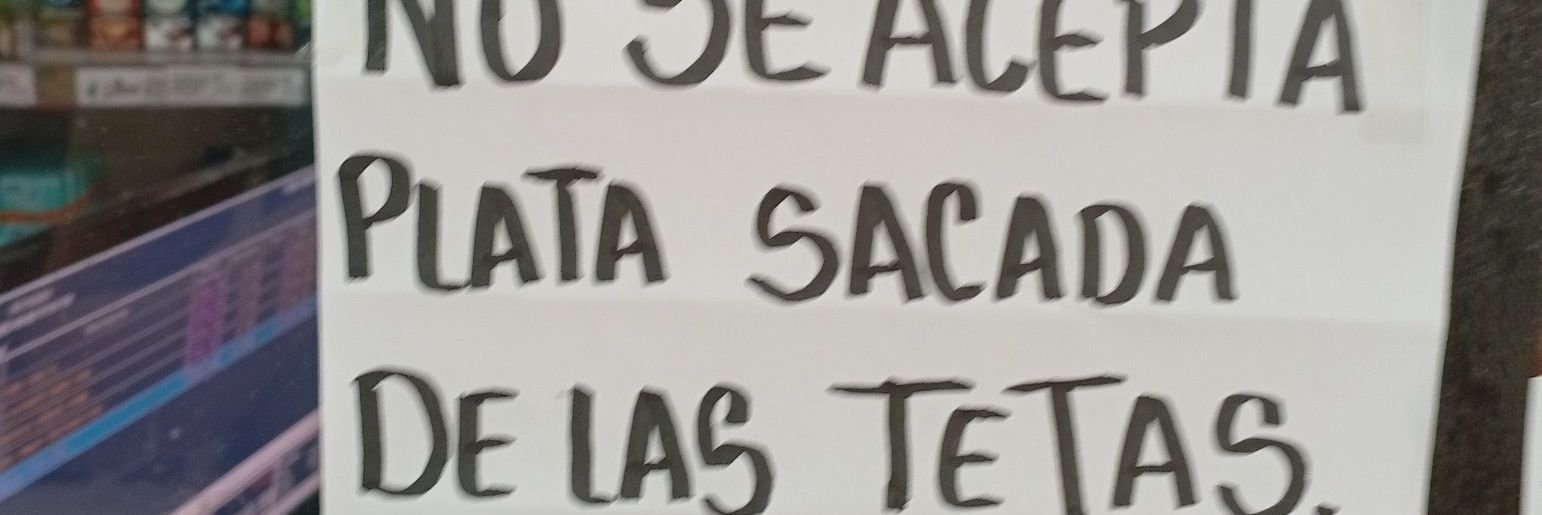 NO SE ACEPTA
PLATA SACADA
DE LAS TETAS.